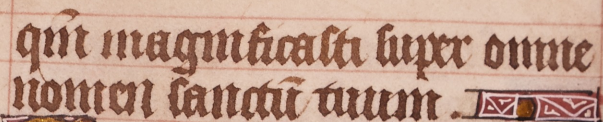 qm̄ magnificasti super omne
nomen sanctū tuum.